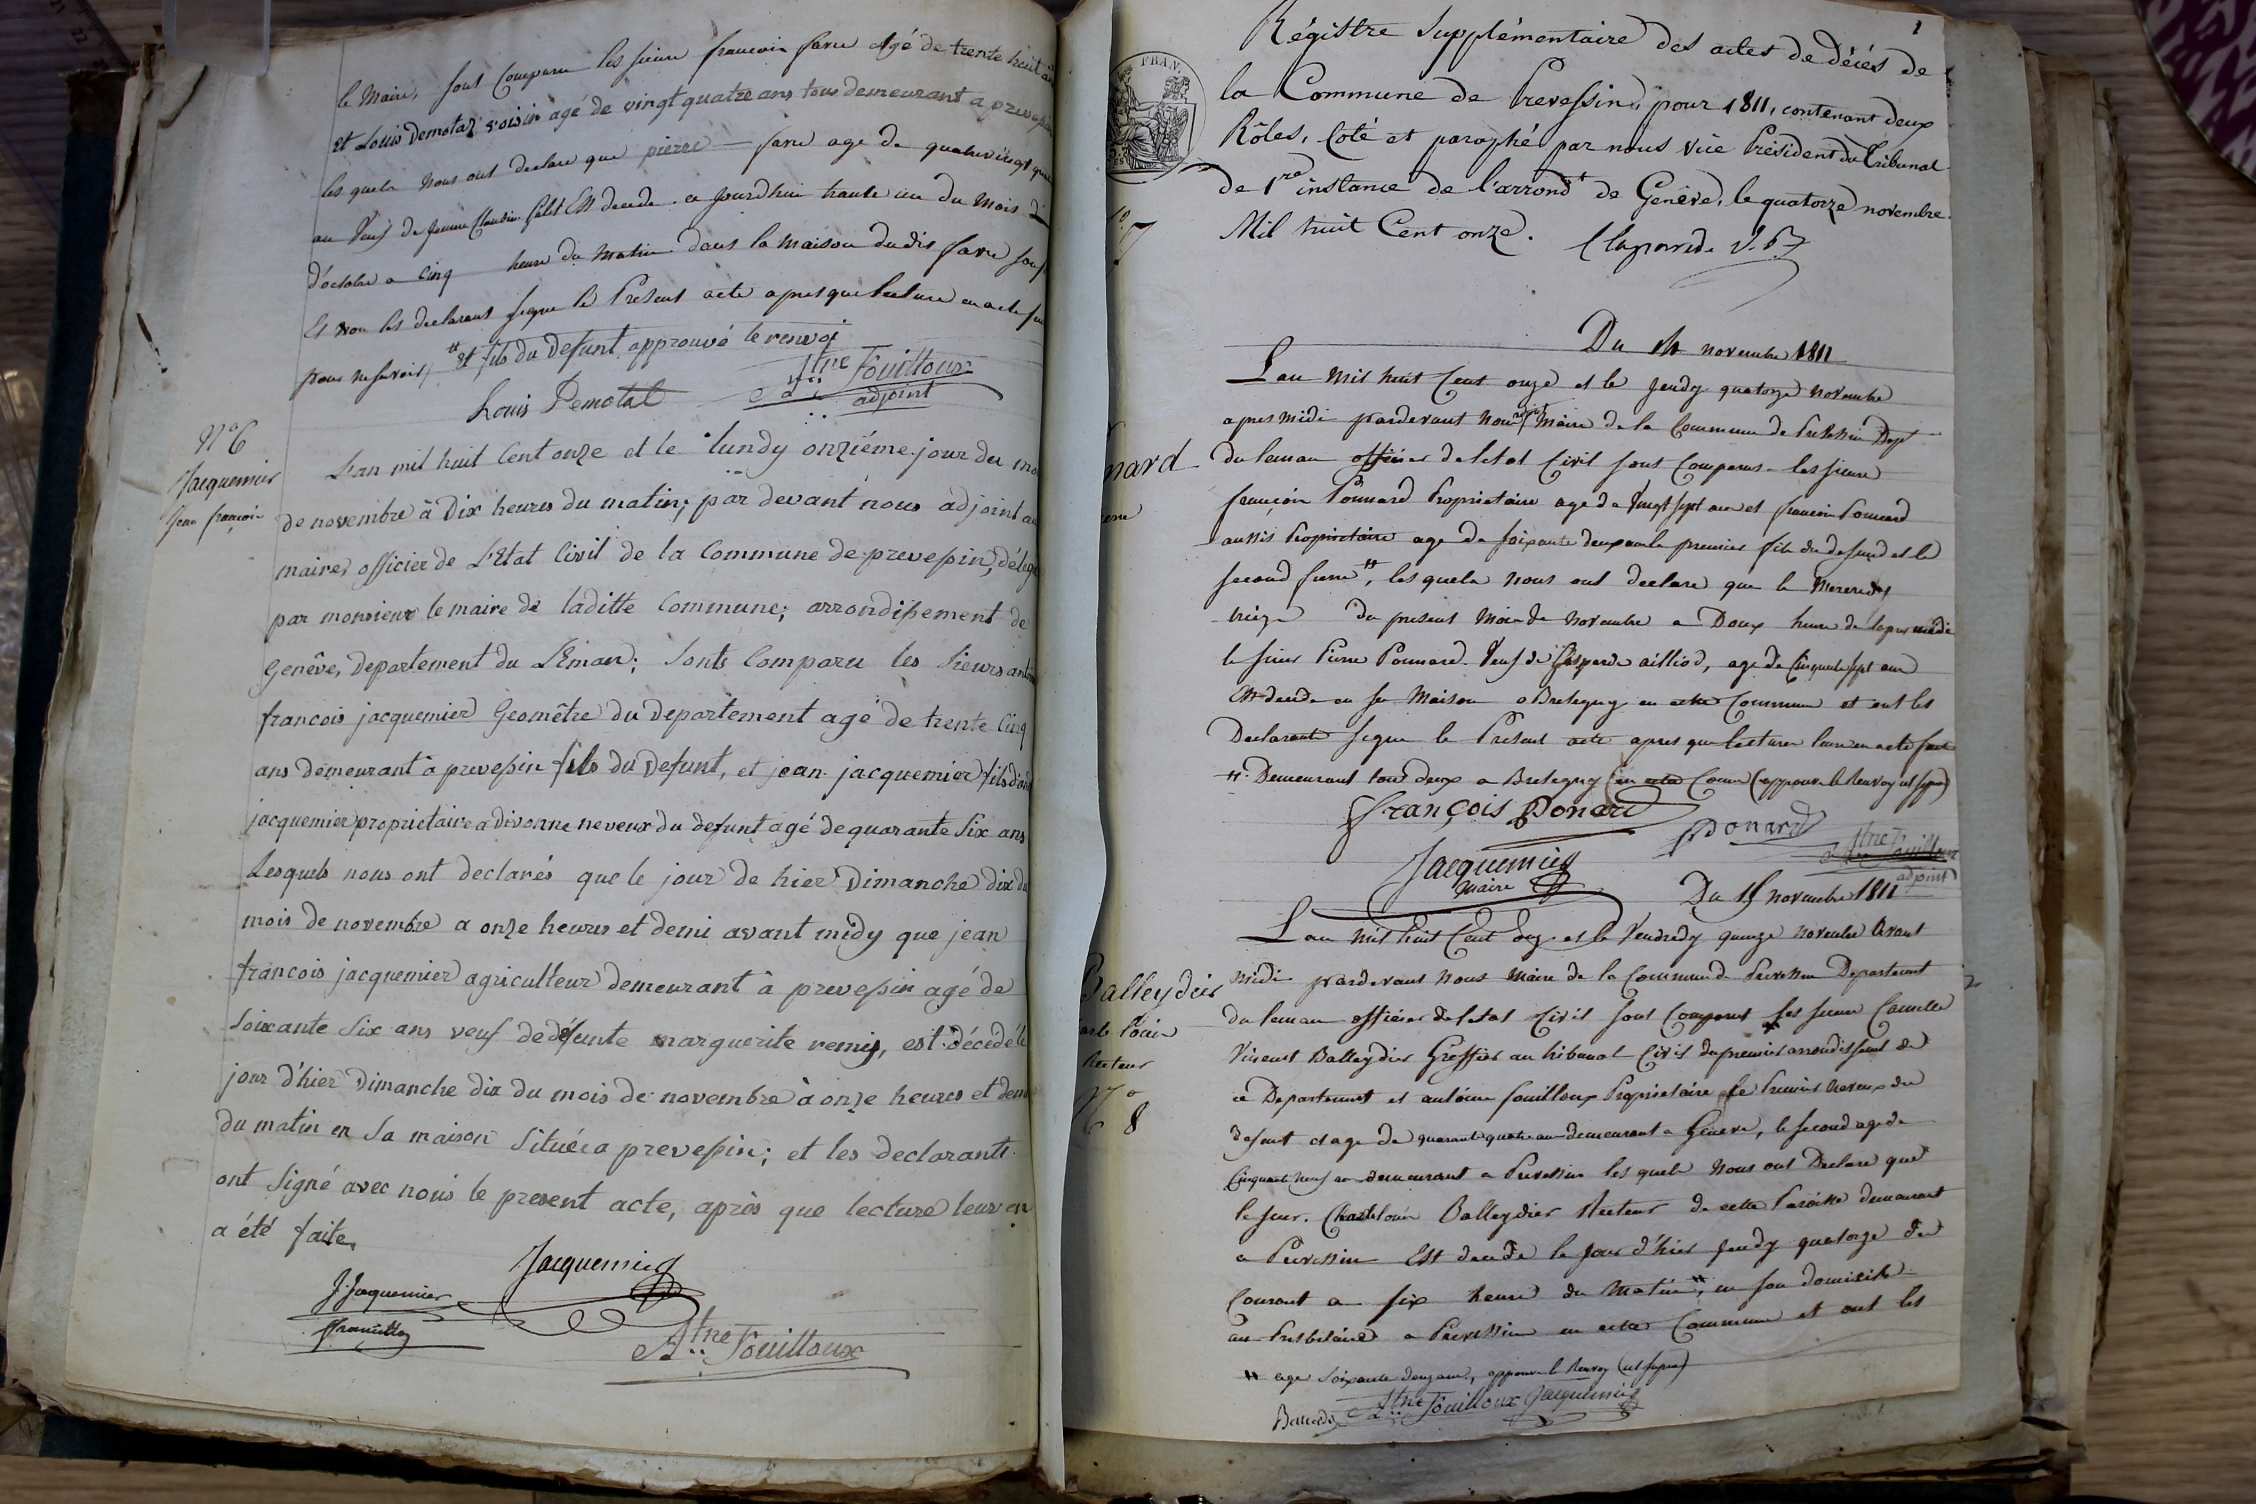 le Maire, sont Comparu les sieurs francoin favre Agé de trente huit an
et Louis Demotaz voisin agé de vingt quatre ans tous demeurant a prevessin
les quels nous ont declare que pierre favre age de quatrevingt
au Veuf de Jeanne Claudine Est decede ce jourdhui trante un du Mois
d'octobre a cinq heure du Matin dans la Maison dudit favre
Et non les declarans signe le Present acte apres que Lecture en a ete
pour ne savoir, et fils du Defunt approuvé le renvoi
Louis Demotal
Atne Fouilloux
adjoint
N° 6
Jacquemier
Jean françois
L'an mil huit Cent onze et le lundy onziéme jour du moi
de novembre à Dix heures du matin; par devant nous adjoint au
maire, officier de L'Etat Civil de la Commune de prevessin, délegé
par monsieur le maire de laditte Commune; arrondissement de
Genêve, Departement du Léman; Sonts Comparu les Sieurs
francois jacquemier Geomêtre du departement agé de trente Cinq
ans demeurant à prevessin fils du Defunt, et jean jacquemier fils
jacquemier proprietaire a divonne neveux du defunt agé de quarante Six ans
Lesquels nous ont declarés que le jour de hier Dimanche dix du
mois de novembre a onze heures et demi avant midy que jean
francois jacquemier agriculteur demeurant à prevessin agé de
Soixante Six ans veuf de défunte marguerite remis, est décédé le
jour d'hier Dimanche dix du mois de novembre à onze heures et demi
du matin en Sa maison Située a prevessin; et les declarants
ont Signé avec nous le present acte, après que lecture leur en
a été faite.
Jacquemier
J. Jacquemier
Atne Fouilloux
1
Régistre Supplémentaire des actes de Décés de
la Commune de Prevessin, pour 1811, contenant deux
Rôles, Coté et paraphé par nous vice Président du Tribunal
de 1re instance de l'arrondt de Genêve, le quatorze novembre
Mil huit Cent onze. Claparede V. P.
FRAN.
7
nard
Du 14 novembre 1811
L'an Mil huit Cent onze et le Jeudy quatorze Novembre
apres midi pardevant Nous Maire de la Commune de Prevessin Dept
du leman officier de letat Civil sont Comparus les sieurs
françoin Ponnard Proprietaire age de Vingt sept ans et francoin Ponnard
aussis Proprietaire age de soixante deux ans le premier fils du defunt et le
second frere, les quels nous ont declare que le Mercredy
treize du present Mois de Novembre a Deux heure de lapres midi
le sieur Pierre Ponnard Veuf de Gasparde ailliod, age de Cinquante sept ans
Est decede en sa Maison a Bretegny en cette Commune et ont les
Declarants signe le Present acte apres que lecture leur en a ete faite
Demeurant tous deux a Bretegny en cette Comm (approuve le Renvoy ut supra)
François Ponard
Ponard
Jacquemier
maire
Atne Fouilloux
adjoint
Du 15 novembre 1811
Balleydier
Recteur
N° 8
L'an Mil huit Cent onze et le Vendredy quinze novembre Avant
midi pardevant Nous Maire de la Commune de Prevessin Departement
du leman officier de letat Civil sont Comparus les sieurs Camille
Vincent Balleydier Greffier au tribunal Civil du premier arrondissement de
ce Departement et antoine fouilloux Proprietaire le Premier Neveux du
defunt et age de quarante quatre ans demeurant a Geneve, le second age de
Cinquante Neuf ans demeurant a Prevessin les quels Nous ont Declare que
le sieur Balleydier Recteur de cette Paroisse demeurant
a Prevessin Est decede le jour d'hier jeudy quatorze du
Courant a six heure du Matin, en son domicile
au Presbitaire a Prevessin en cette Commune et ont les
age soixante douze ans, approuve le Renvoy (ut supra)
Atne Fouilloux Jacquemier